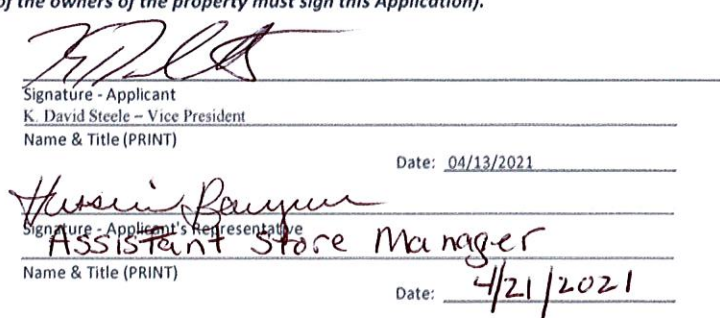 of the owners of the property must sign this Application).
Signature - Applicant
K. David Steele – Vice President
Name & Title (PRINT)
Date: 04/13/2021
Signature - Applicant's Representative
Assistant Store Manager
Name & Title (PRINT)
Date: 4/21/2021